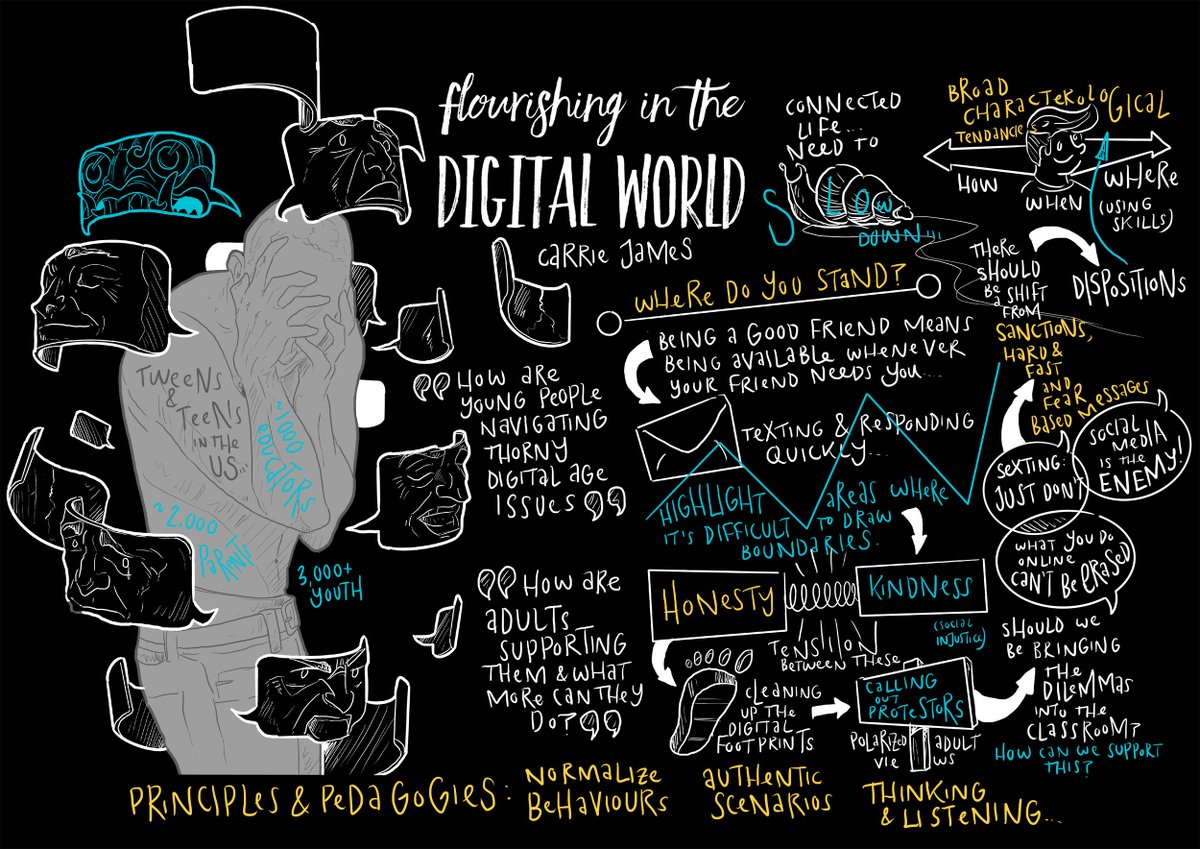 flourishing in the
DIGITAL WORLD
CARRIE JAMES
TWEENS
&
TEENS
IN THE
US...
~1000
EDUCATORS
~2,000
PARENTS
3,000+
YOUTH
"HOW ARE
YOUNG PEOPLE
NAVIGATING
THORNY
DIGITAL AGE
ISSUES"
"HOW ARE
ADULTS
SUPPORTING
THEM & WHAT
MORE CAN THEY
DO?"
CONNECTED
LIFE...
NEED TO
SLOW
DOWN!!!
BROAD
CHARACTEROLOGICAL
TENDANCIES
HOW
WHEN
WHERE
(USING
SKILLS)
DISPOSITIONS
THERE
SHOULD
BE
A SHIFT
FROM
SANCTIONS,
HARD &
FAST
AND
FEAR
BASED MESSAGES
SOCIAL
MEDIA
IS THE
ENEMY!
SEXTING:
JUST DON'T
WHAT YOU DO
ONLINE
CAN'T BE ERASED
WHERE DO YOU STAND?
BEING A GOOD FRIEND MEANS
BEING AVAILABLE WHENEVER
YOUR FRIEND NEEDS YOU....
TEXTING & RESPONDING
QUICKLY...
HIGHLIGHT AREAS WHERE
IT'S DIFFICULT TO DRAW
BOUNDARIES.
HONESTY
KINDNESS
(SOCIAL
INJUSTICE)
TENSIION
BETWEEN THESE
CLEANING
UP THE
DIGITAL
FOOTPRINTS
CALLING
OUT
PROTESTORS
POLARIZED ADULT
VIEWS
SHOULD WE
BE BRINGING
THE
DILEMMAS
INTO THE
CLASSROOM?
HOW CAN WE SUPPORT
THIS?
PRINCIPLES & PEDAGOGIES:
NORMALIZE
BEHAVIOURS
AUTHENTIC
SCENARIOS
THINKING
& LISTENING...